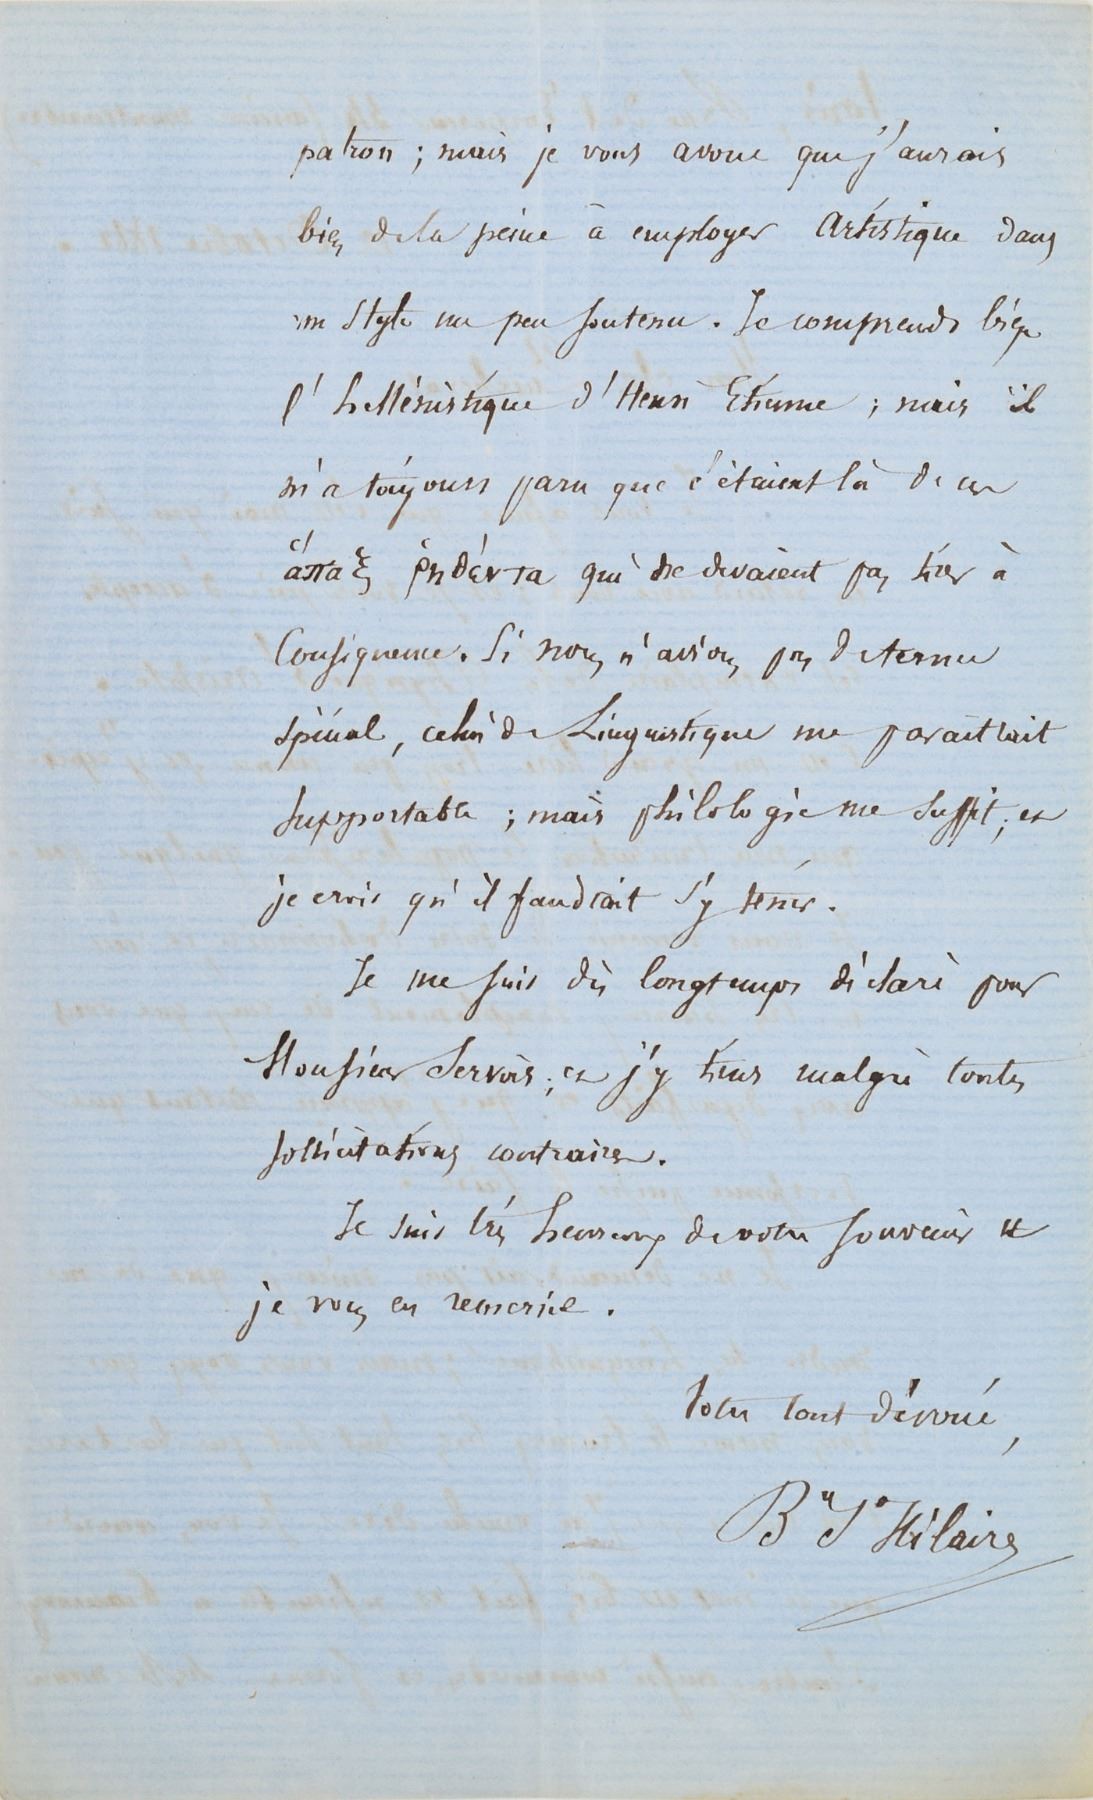 patron ; mais je vous avoue que j'aurais
bien de la peine à employer Artistique dans
un style un peu soutenu. Je comprends bien
l'hellénistique d'Henri Etienne ; mais il
m'a toujours paru que c'étaient là de ces
ἅπαξ ῥηθέντα qui ne devaient pas tirer à
Conséquence. Si nous n'avions pas de terme
spécial, celui de Linguistique me paraîtrait
supportable ; mais philologie me suffit ; et
je crois qu'il faudrait s'y tenir.
Je me suis dès longtemps déclaré pour
Monsieur Servois ; et j'y tiens malgré toutes
sollicitations contraires.
Je suis très heureux de votre souvenir et
je vous en remercie.
Votre tout dévoué,
By St Hilaire